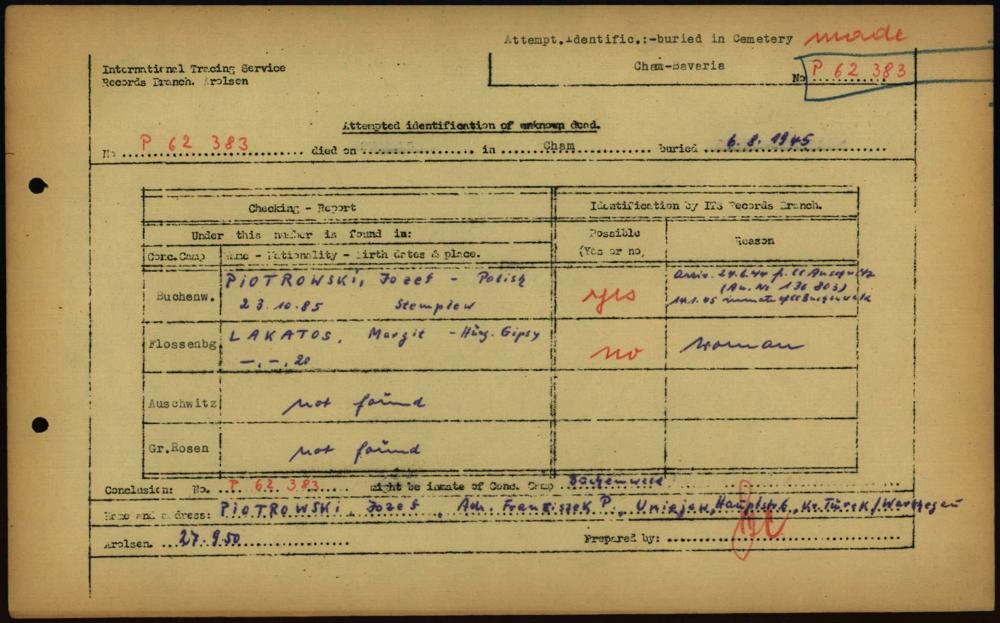 Attempt.Identific.:-buried in Cemetery made
Cham-Bavaria
International Tracing Service
Records Branch. Arolsen
No P 62 383
Attempted identification of unknown dead.
No P 62 383 died on in Cham buried 6.8.1945
Checking - Report
Identification by ITS Records Branch.
Under this number is found in:
Possible (Yes or no)
Reason
Conc.Camp
Name - Nationality - Birth dates & place.
Buchenw.
PIOTROWSKI, Jozef - Polish
23.10.85 Stemplew
yes
14.1.45 inmate of CC Buchenwald
Flossenbg
LAKATOS, Margit - Hung. Gipsy
-.-.20
no
woman
Auschwitz
not found
Gr.Rosen
not found
Conclusion: No. P 62 383 might be inmate of Conc. Camp Buchenwald
Name and address: PIOTROWSKI, Jozef, Adr. Franziszek P., Uniejow, Hauptstr., Kr. Turek/Warthegau
Arolsen. 27.9.50
Prepared by: